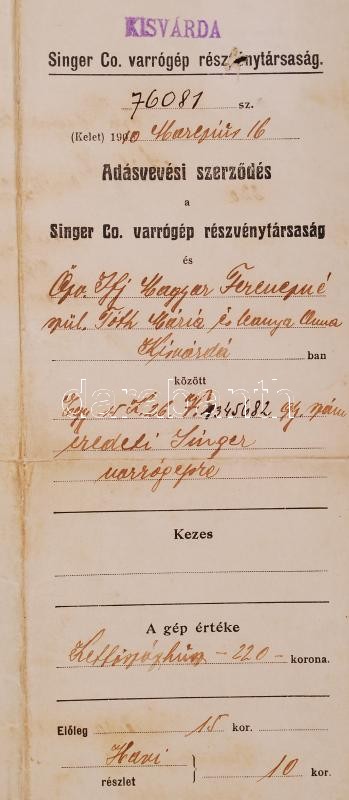 KISVÁRDA
Singer Co. varrógép részvénytársaság.
76081 sz.
(Kelet) 1910 Marczius 16
Adásvevési szerződés
a
Singer Co. varrógép részvénytársaság
és
Özv. Ifj Magyar Ferenczné
szül. Tóth Mária és leanya Anna
Kisvárda ban
között
darabanth
Egy 15 K. 26 1345682 gy. számu
eredeti Singer
varrógépre
Kezes
A gép értéke
Kettőszázhúsz – 220 – korona.
Előleg 15 kor.
Havi
részlet 10 kor.